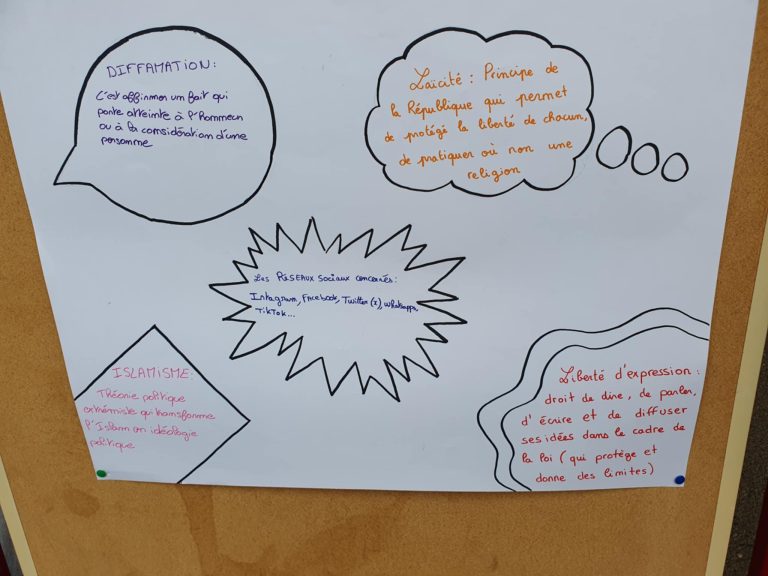 DIFFAMATION :
C'est affirmer un fait qui
porte atteinte à l'Hommeur
ou à la considération d'une
personne
Laïcité : Principe de
la République qui permet
de protégé la liberté de chacun,
de pratiquer où non une
religion
Les RÉSEAUX sociaux concernés :
Intagram, Facebook, Twitter (X), whatsapp,
TikTok...
ISLAMISME :
Théorie politique
extrémiste qui transforme
l'Islam en idéologie
politique
Liberté d'expression :
droit de dire, de parler,
d'écrire et de diffuser
ses idées dans le cadre de
la loi ( qui protège et
donne des limites)